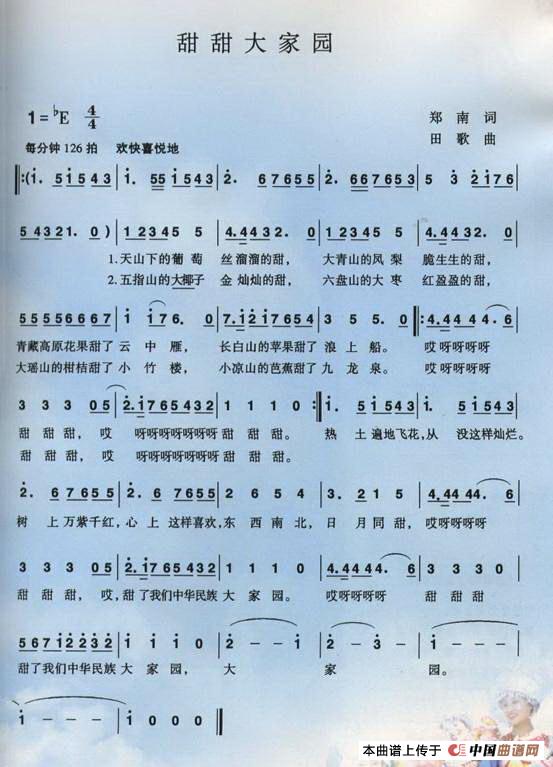 甜甜大家园
1=♭E 4/4
郑南词
田歌曲
每分钟126拍 欢快喜悦地
‖:(i. 51543 | i. 55 i543 | 2. 67655 | 2. 667653 | 5 3 2176 |
54321. 0) | 12345 5 | 4.4432. 0 | 12345 5 | 4.4432. 0 |
1.天山下的葡萄 丝溜溜的甜, 大青山的凤梨 脆生生的甜,
2.五指山的大椰子 金灿灿的甜, 六盘山的大枣 红盈盈的甜,
55556667 | i i76. 0 | 7.i2i7654 | 3 5 5. 0 :‖: 4.4444. 6 |
青藏高原花果甜了 云中雁, 长白山的苹果甜了 浪上船。 哎呀呀呀呀
大瑶山的柑桔甜了 小竹楼, 小凉山的芭蕉甜了 九龙泉。 哎呀呀呀呀
3 3 3 05 | 2.i765432 | 1 1 1 0 :‖ i. 51543 | i. 51543 |
甜甜甜, 哎 呀呀呀呀呀呀呀 甜甜甜。 热土遍地飞花,从 没这样灿烂。
甜甜甜, 哎 呀呀呀呀呀呀呀 甜甜甜。
2. 67655 | 2. 67655 | 2 6 5 4 | 3. 2 1 5 | 4.4444. 6 |
树上万紫千红,心上这样喜欢,东西南北,日月同甜,哎呀呀呀呀
3 3 3 05 | 2.i765432 | 1 1 1 0 | 4.4444. 6 | 3 3 3 0 |
甜甜甜, 哎,甜了我们中华民族 大家园。 哎呀呀呀呀 甜甜甜
567i2232 | i i i 0 | 2 - - i | 2 - 3 - | i - - - |
甜了我们中华民族 大家园, 大 家 园。
i - - - | i 0 0 0 ‖
本曲谱上传于 中国曲谱网